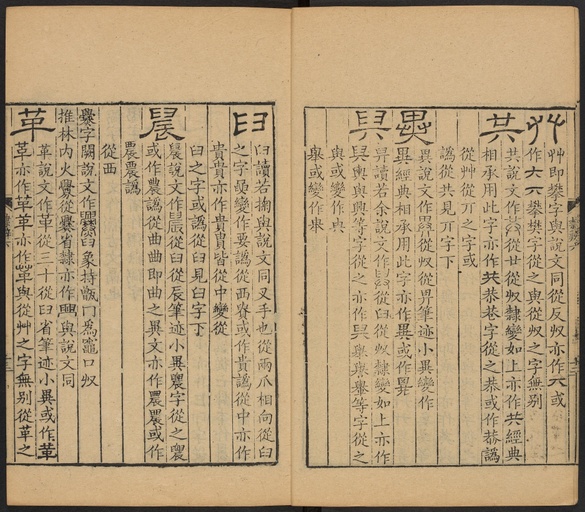 𠬜
𠬜即攀字與說文同從反収亦作大或
作大六攀樊字從之與從収之字無別
共
共說文作從廿從収隸變如上亦作共經典
相承用此字亦作共恭巷字從之恭或作恭譌
從艸從丌之字或
譌從共見丌字下
異
異說文作從収從畀筆迹小異變作
異經典相承用此字亦作異或作異
舁
舁讀若余說文作從臼從収隸變如上亦作
與輿與興等字從之亦作舉舉等字從之
與或變作與
舉或變作
臼
臼讀若掬與說文同叉手也從兩爪相向從臼
之字變作要譌從西或作貴譌從中亦作
貴貴亦作貴貴皆從中變從
臼之字或譌從臼見臼字下
晨
晨說文作從臼從辰筆迹小異農字從之農
或作農譌從曲曲即曲之異文亦作農農或作
農農譌
從西
爨字闕說文作臼象持甑冂為竈口収
推林內火釁從爨省隸亦作與說文同
革
革說文作革從三十從臼省筆迹小異或作革
革亦作革革亦作革與從艸之字無別從革之